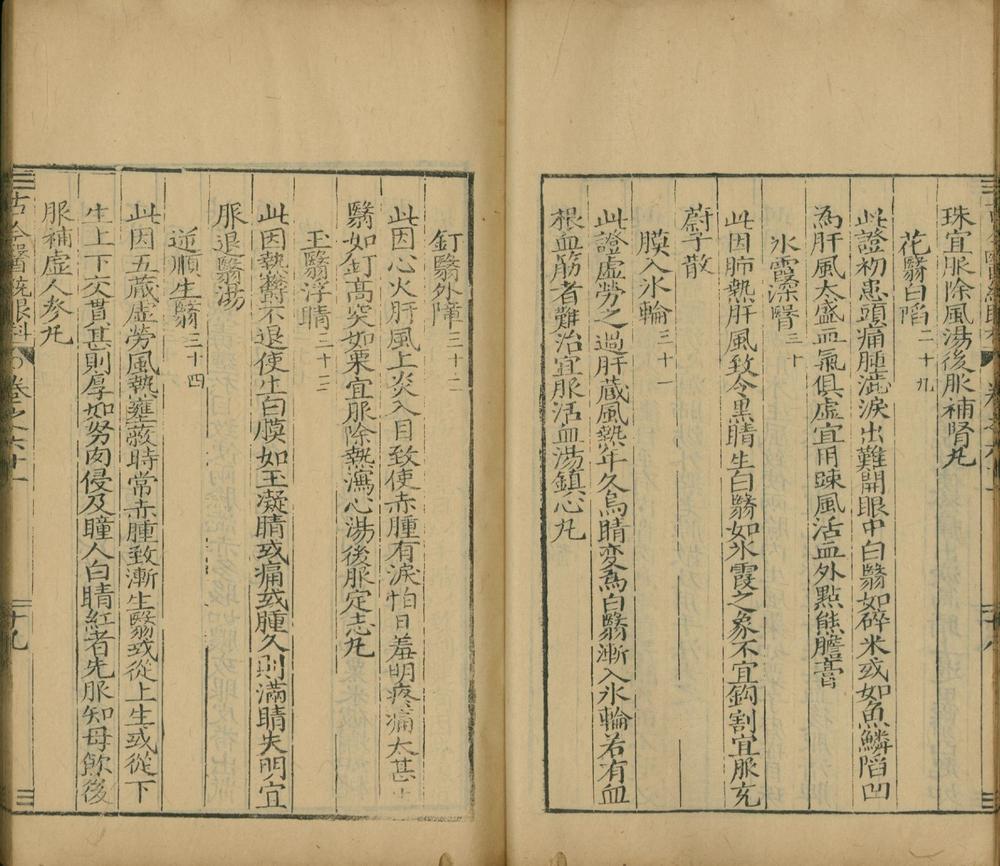 珠宜服除風湯後服補腎丸
花翳白陷二十九
此證初患頭痛腫澁淚出難開眼中白翳如碎米或如魚鱗陷凹
為肝風太盛血氣俱虛宜用疎風活血外點熊膽膏
氷霞深翳三十
此因肺熱肝風致令黑睛生白翳如氷霞之象不宜鈎割宜服充
蔚子散
膜入氷輪三十一
此證虛勞之過肝蔵風熱年久烏睛變為白翳漸入氷輪若有血
根血筋者難治宜服活血湯鎮心丸
釘翳外障三十二
此因心火肝風上炎入目致使赤腫有淚怕日羞明疼痛太甚
翳如釘高突如粟宜服除熱瀉心湯後服定志丸
玉翳浮睛三十三
此因熱鬱不退使生白膜如玉凝睛或痛或腫久則滿睛失明宜
服退翳湯
逆順生翳三十四
此因五蔵虛勞風熱壅熾時常赤腫致漸生翳或從上生或從下
生上下交貫甚則厚如努肉侵及瞳人白睛紅者先服知母飲後
服補虛人參丸
古今醫統眼科 卷之六十一 十九